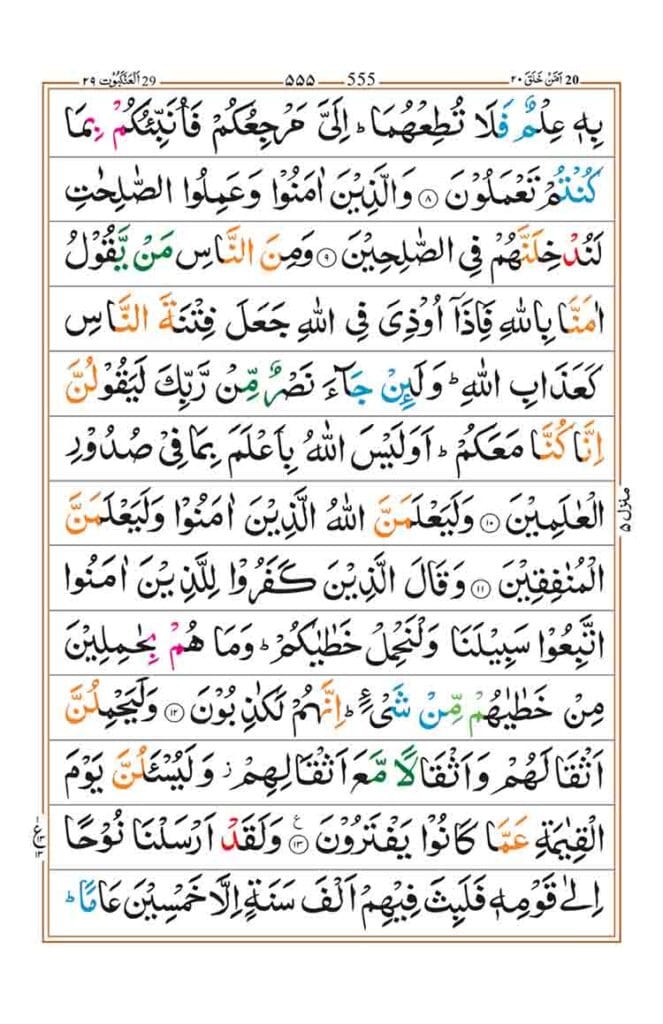 20 اَمَّنْ خَلَقَ ٢٠ 555 ٥٥٥ 29 اَلْعَنْكَبُوْت ٢٩
بِهٖ عِلْمٌ فَلَا تُطِعْهُمَا ؕ اِلَیَّ مَرْجِعُكُمْ فَاُنَبِّئُكُمْ بِمَا
كُنْتُمْ تَعْمَلُوْنَ ۝۸ وَالَّذِیْنَ اٰمَنُوْا وَعَمِلُوا الصّٰلِحٰتِ
لَنُدْخِلَنَّهُمْ فِی الصّٰلِحِیْنَ ۝۹ وَمِنَ النَّاسِ مَنْ یَّقُوْلُ
اٰمَنَّا بِاللّٰهِ فَاِذَاۤ اُوْذِیَ فِی اللّٰهِ جَعَلَ فِتْنَةَ النَّاسِ
كَعَذَابِ اللّٰهِ ؕ وَلَىِٕنْ جَآءَ نَصْرٌ مِّنْ رَّبِّكَ لَیَقُوْلُنَّ
اِنَّا كُنَّا مَعَكُمْ ؕ اَوَلَیْسَ اللّٰهُ بِاَعْلَمَ بِمَا فِیْ صُدُوْرِ
الْعٰلَمِیْنَ ۝۱۰ وَلَیَعْلَمَنَّ اللّٰهُ الَّذِیْنَ اٰمَنُوْا وَلَیَعْلَمَنَّ
الْمُنٰفِقِیْنَ ۝۱۱ وَقَالَ الَّذِیْنَ كَفَرُوْا لِلَّذِیْنَ اٰمَنُوا
اتَّبِعُوْا سَبِیْلَنَا وَلْنَحْمِلْ خَطٰیٰكُمْ ؕ وَمَا هُمْ بِحٰمِلِیْنَ
مِنْ خَطٰیٰهُمْ مِّنْ شَیْءٍ ؕ اِنَّهُمْ لَكٰذِبُوْنَ ۝۱۲ وَلَیَحْمِلُنَّ
اَثْقَالَهُمْ وَاَثْقَالًا مَّعَ اَثْقَالِهِمْ ز وَلَیُسْـَٔلُنَّ یَوْمَ
الْقِیٰمَةِ عَمَّا كَانُوْا یَفْتَرُوْنَ ۝۱۳ ع وَلَقَدْ اَرْسَلْنَا نُوْحًا
اِلٰی قَوْمِهٖ فَلَبِثَ فِیْهِمْ اَلْفَ سَنَةٍ اِلَّا خَمْسِیْنَ عَامًا ؕ
منزل ۵